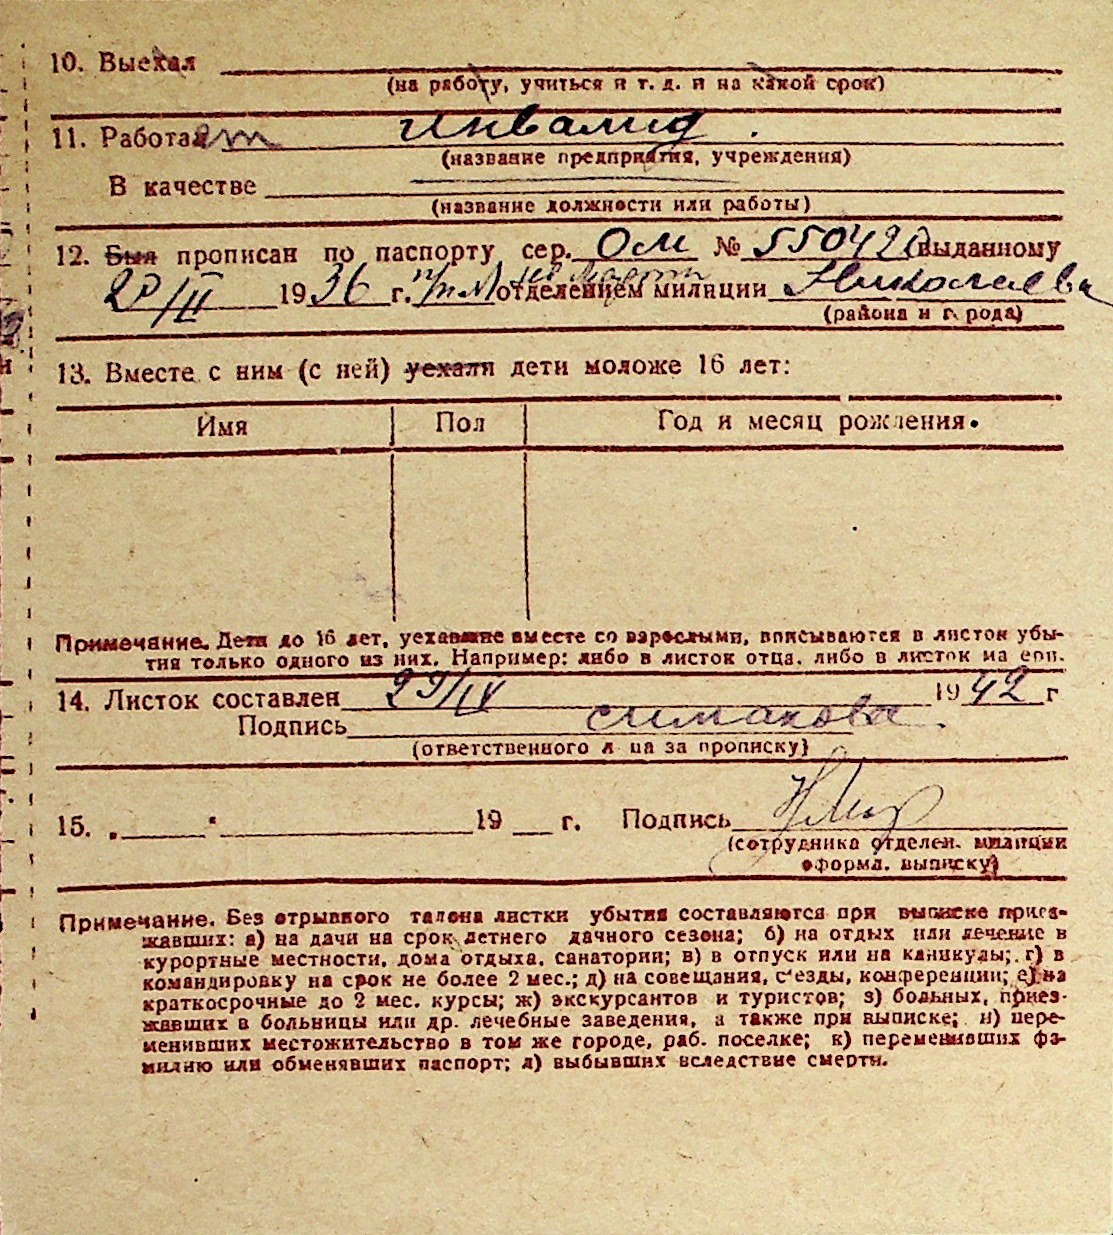 10. Выехал
(на работу, учиться и т. д. и на какой срок)
11. Работает инвалид.
(название предприятия, учреждения)
В качестве
(название должности или работы)
12. Был прописан по паспорту сер. ОМ № 550420 выданному
1936 г. отделением милиции Николаева
(района и города)
13. Вместе с ним (с ней) уехали дети моложе 16 лет:
Имя Пол Год и месяц рождения.
Примечание. Дети до 16 лет, уехавшие вместе со взрослыми, вписываются в листок убы-
тия только одного из них. Например: либо в листок отца, либо в листок матери.
14. Листок составлен 29/IV 1942 г
Подпись Симакова.
(ответственного лица за прописку)
15. „ " 19 г. Подпись
(сотрудника отделен. милиции
оформл. выписку)
Примечание. Без отрывного талона листки убытия составляются при выписке приез-
жавших: а) на дачи на срок летнего дачного сезона; б) на отдых или лечение в
курортные местности, дома отдыха, санатории; в) в отпуск или на каникулы; г) в
командировку на срок не более 2 мес.; д) на совещания, с'езды, конференции; е) на
краткосрочные до 2 мес. курсы; ж) экскурсантов и туристов; з) больных, приез-
жавших в больницы или др. лечебные заведения, а также при выписке; и) пере-
менивших местожительство в том же городе, раб. поселке; к) переменивших фа-
милию или обменявших паспорт; л) выбывших вследствие смерти.